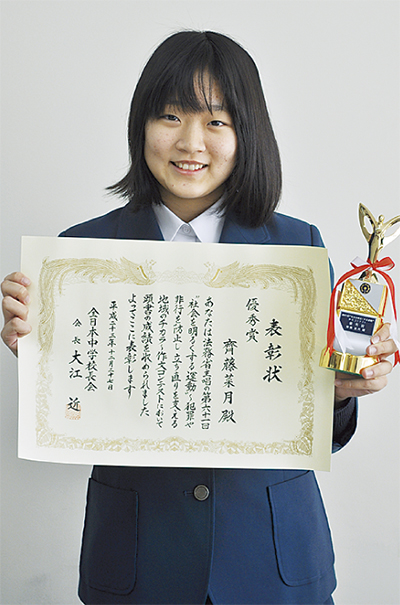 表彰状
優秀賞
齊藤菜月殿
あなたは法務省主唱の第六十一回
“社会を明るくする運動”～犯罪や
非行を防止し立ち直りを支える
地域のチカラ～作文コンテストにおいて
頭書の成績を収められました
よってここに表彰します
平成二十三年十二月二十七日
全日本中学校長会
会長 大江 近